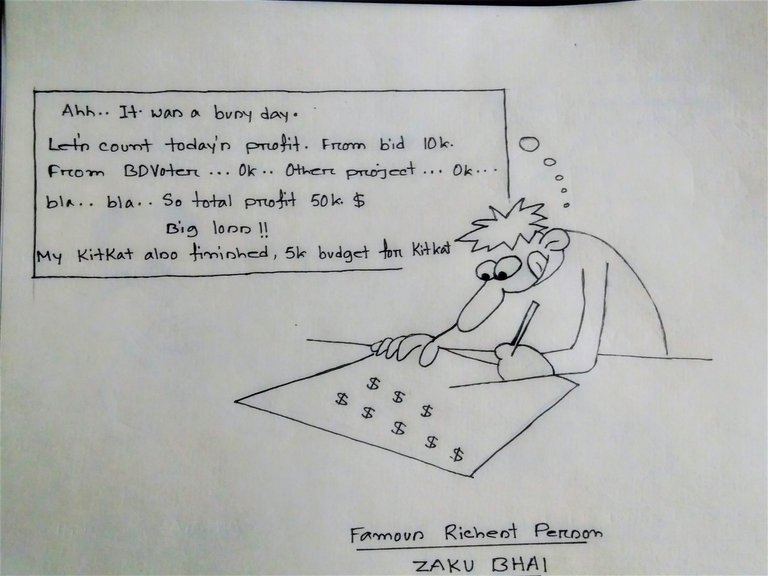 Ahh.. It was a busy day.
Let's count today's profit. From bid 10k.
From BDVoter ... 0k.. Other project ... 0k...
bla.. bla.. So total profit 50k $
Big loss !!
My KitKat also finished, 5k budget for Kitkat
$ $ $ $ $ $ $ $
Famous Richest Person
ZAKU BHAI